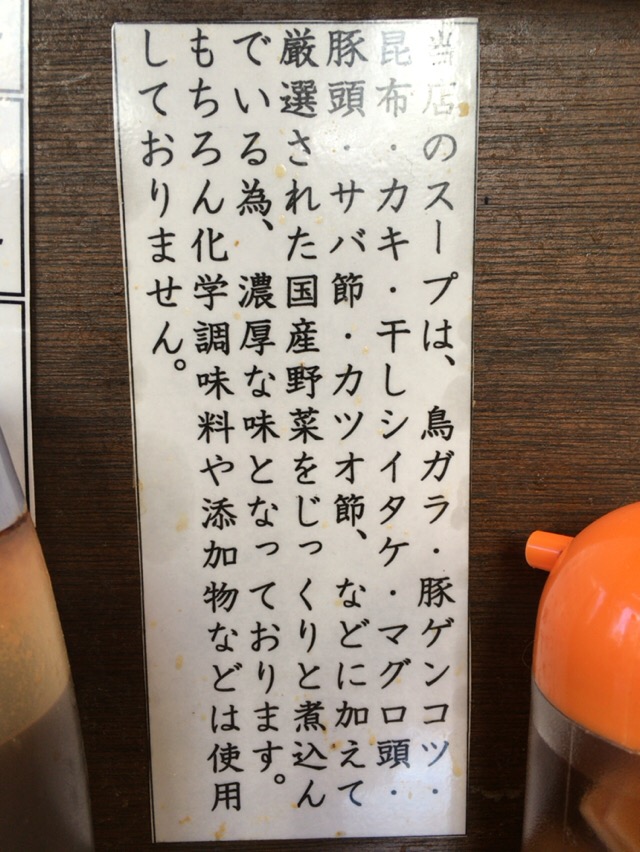 当店のスープは、鳥ガラ・豚ゲンコツ・
昆布・カキ・干しシイタケ・マグロ頭・
豚頭・サバ節・カツオ節、などに加えて
厳選された国産野菜をじっくりと煮込ん
でいる為、濃厚な味となっております。
もちろん化学調味料や添加物などは使用
しておりません。